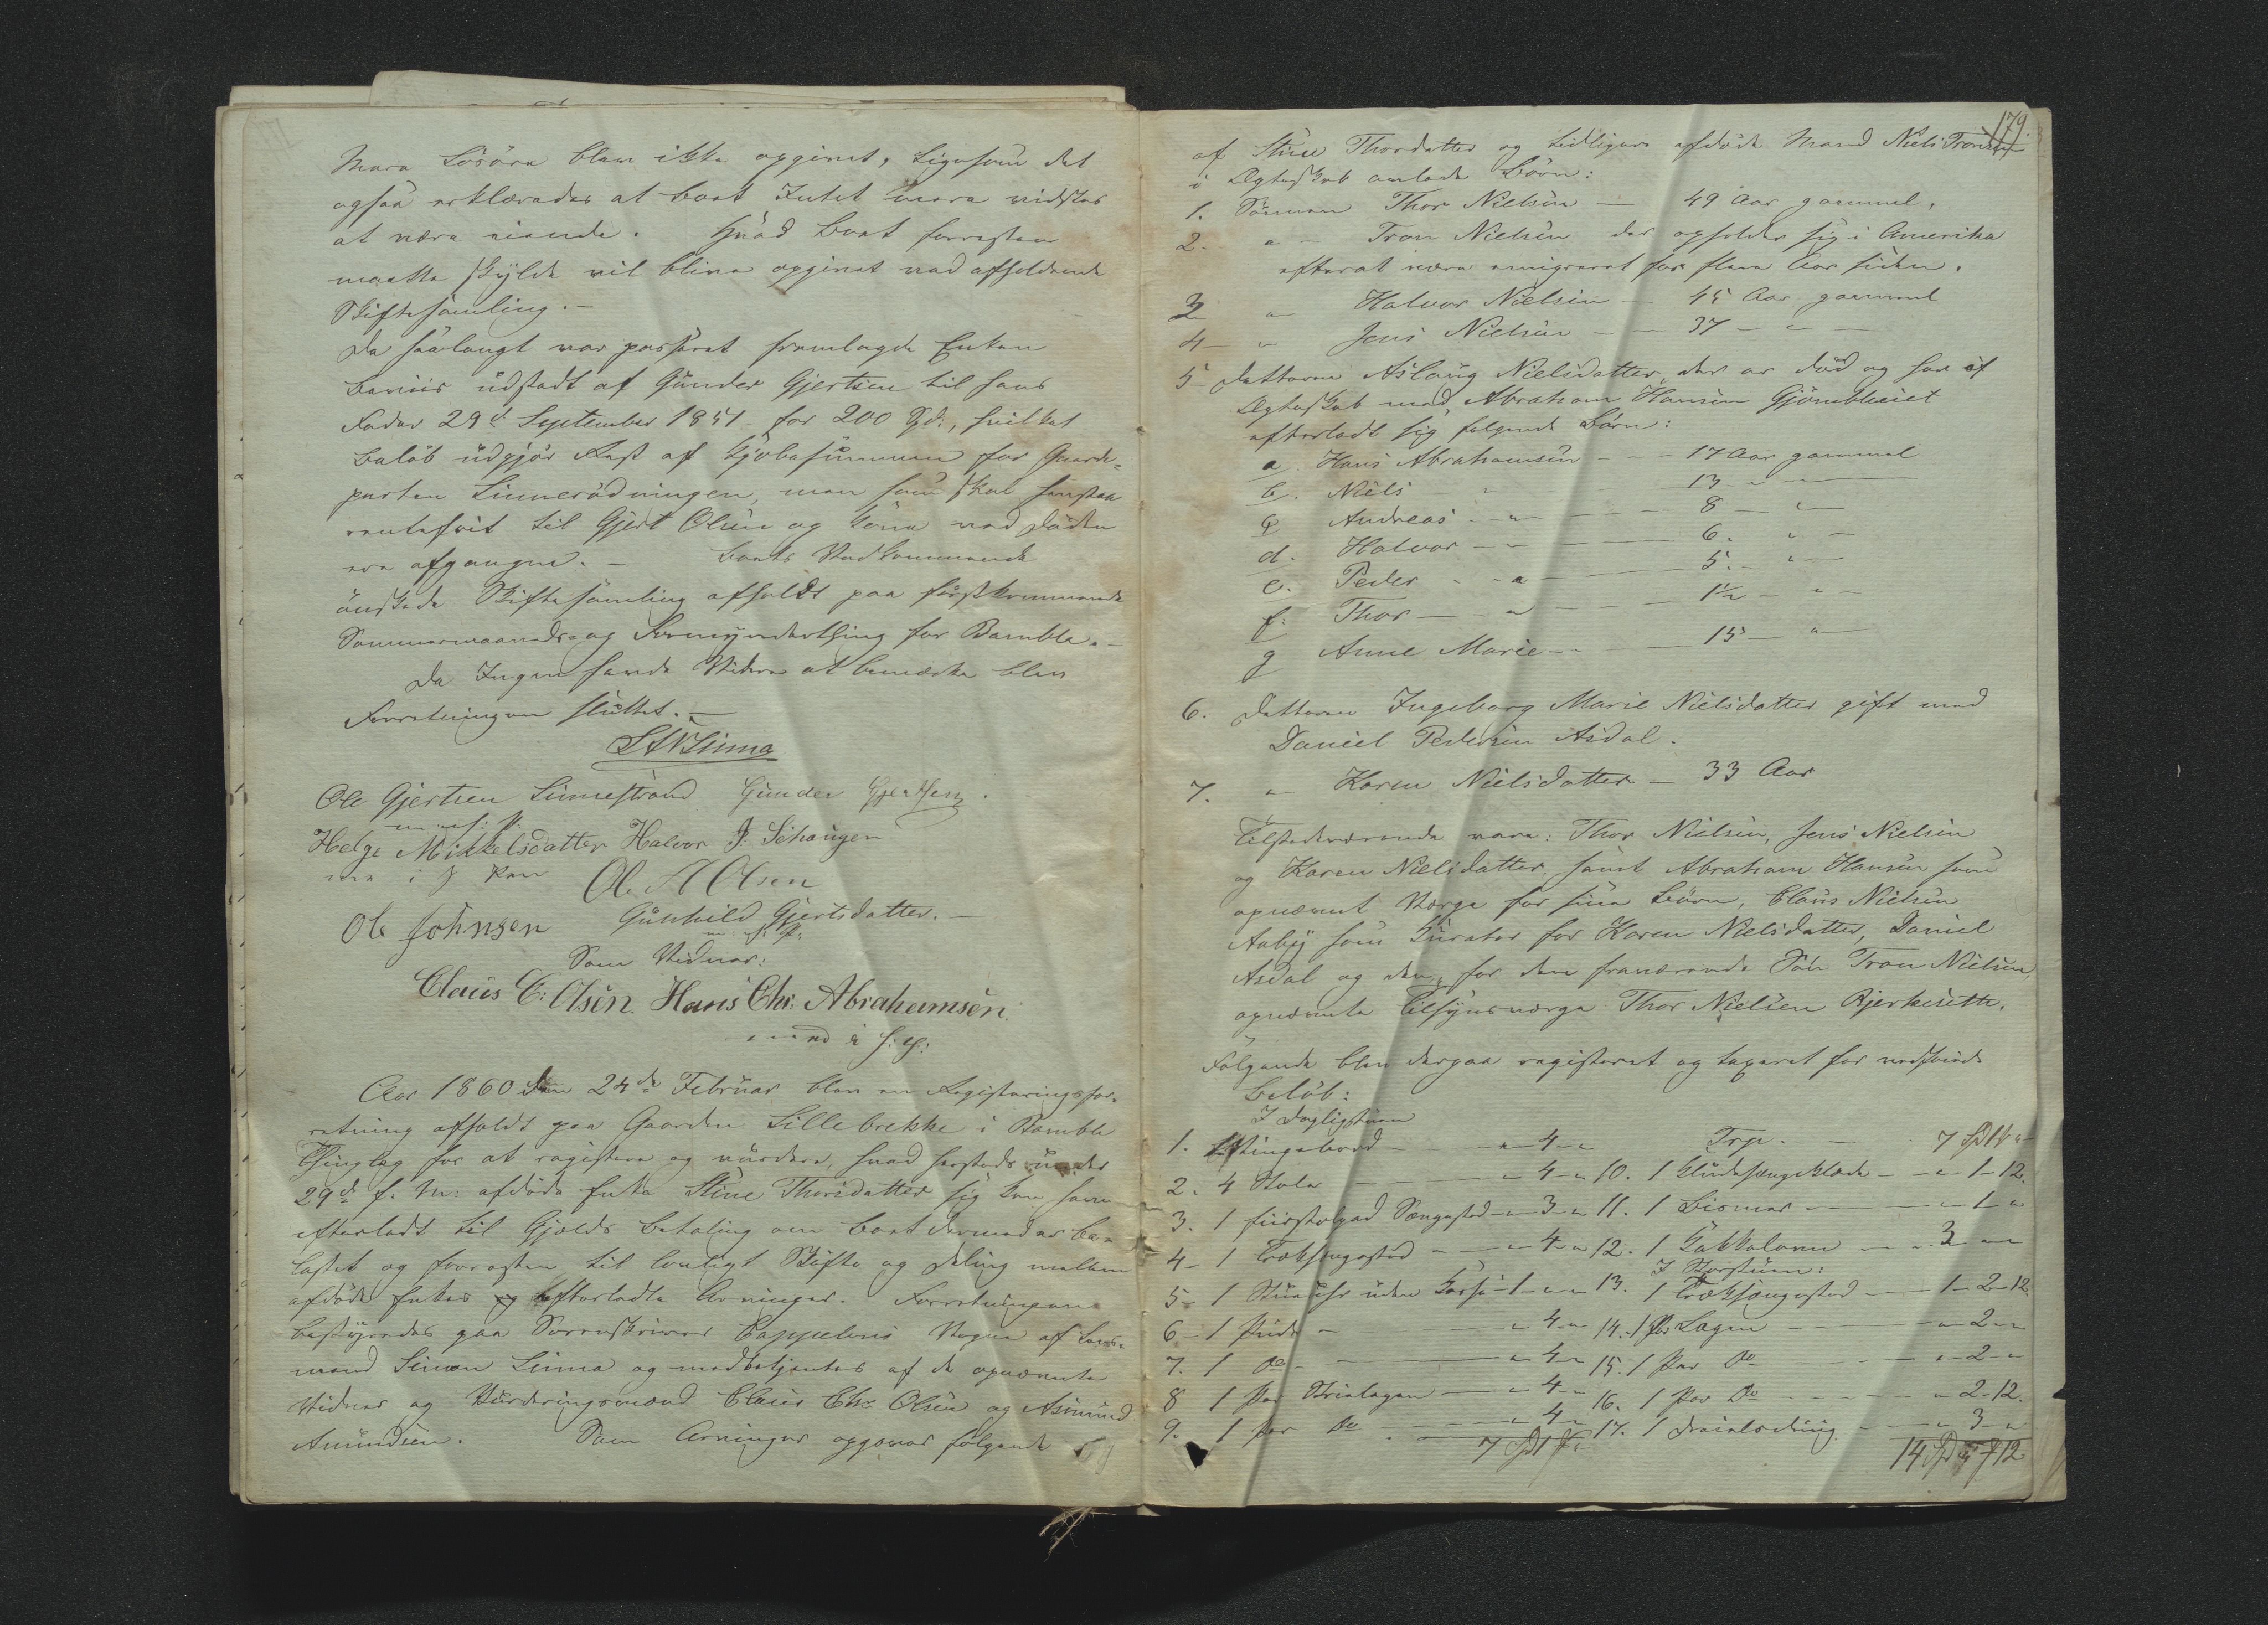 Mere Løsøre blev ikke opgivet, ligesom det
ogsaa erklæredes at Boet Intet mere vidstes
at være eiende. Hvad Boet forresten
maatte skylde vil blive opgivet ved afholdende
Skiftesamling.-
Da saalangt var passeret fremlagde Enken
Beviis udstædt af Gunder Gjertsen til hans
Fader 29d September 1851 for 200 Spd., hvilket
Beløb udgjør Rest af Kjøbesummen for Gaard-
parten Sinnerødningen, men som skal henstaa
rentefrit til Gjert Olsen og Kone ved Døden
ere afgangne.- Boets Vedkommende
ønskede Skiftesamling afholdt paa førstkommende
Sommermaaneds- og Formynderthing for Bamble.-
Da Ingen havde Videre at bemærke blev
Forretningen sluttet.-
S A N Sinna
Ole Gjertsen Sinnestrand Gunder Gjertsen
m. f. P.
Helge Mikkelsdatter Halvor J. Sehaugen
Ole A Olsen
Ole Johnsen Gunhild Gjertsdatter.-
m. f. P.
Som Vidner:
Claus C: Olsen. Hans Chr. Abrahamsen.
Aar 1860 den 24de Februar blev en Registeringsfor-
retning afholdt paa Gaarden Lillebrekke i Bamble
Thinglag for at registere og vurdere, hvad hersteds under
29d f. M. afdøde Enke Stine Thorsdatter sig kan have
efterladt til Gjælds Betaling om Boet dermed er be-
lastet og forresten til lovligt Skifte og Deling mellem
afdøde Enkes efterladte Arvinger. Forretningen
bestyredes paa Sorenskriver Cappelens Vegne af Lens-
mand Simon Sinna og medbetjentes af de opnævnte
Vidner og Vurderingsmænd Claus Chr. Olsen og Asmund
Amundsen. Som Arvinger opgaves følgende
179.
af Stine Thordatter og tidligere afdøde Mand Niels Tronsen
i Ægteskab avlede Børn:
1. Sønnen Thor Nielsen - 49 Aar gammel,
2. " - Tron Nielsen der opholder sig i Amerika
efterat være emigreret for flere Aar siden.
3 " Halvor Nielsen - 45 Aar gammel
4 - " Jens Nielsen - - 37 - " -
5 - Datteren Aslaug Nielsdatter, der er død og har i
Ægteskab med Abraham Hansen Gjømbleiet
efterladt sig følgende Børn:
a. Hans Abrahamsen - - - 17 Aar gammel
b. Niels - " 13 - " -
c Andreas - " - - 8 - " -
d. Halvor - - 6. " -
e. Peder - " - 5. - " -
f. Thor - " - 1½ - " -
g Anne Marie - - 15 - " -
6. Datteren Ingeborg Marie Nielsdatter gift med
Daniel Pedersen Asdal.
7. " Karen Nielsdatter - 33 Aar
Tilstedeværende vare: Thor Nielsen, Jens Nielsen
og Karen Nielsdatter, samt Abraham Hansen som
opnævnt Værge for sine Børn, Claus Nielsen
Aaby som Curator for Karen Nielsdatter, Daniel
Asdal og den, for den fraværende Søn Tron Nielsen,
opnævnte Tilsynsværge Thor Nielsen Bjerkesette.
Følgende blev derpaa registeret og taxeret for vedførte
Beløb:
I Dagligstuen
1. 1 Slingebord - " 4 - "
2. 4 Stole - " 4 - "
3. 1 fiirstolped Sængested - " 3 - "
4 - 1 Træksengested - " 4 - "
5 - 1 Stueuhr uden Kasse - 1 - " - "
6 - 1 Pude - " 4 - "
7. 1 Do - " 4 - "
8 1 Par Strielagen - " 4 - "
9. 1 Par Do - " 4 -
7 Spd 1
Trp. 7 Spd 1 " -
10. 1 Kludesængeklæde - " 1 - 12.
11. 1 Bismer - " 1 "
12. 1 Kakkelovn - " 3 - "
I Storstuen:
13. 1 Træksængested - 1 - 2 - 12.
14. 1 Par Lagen - " 2 - "
15. 1 Par Do - " 2 - "
16. 1 Par Do - " 2 - 12.
17. 1 Dreielsdug - " 3 - "
14 Spd 12